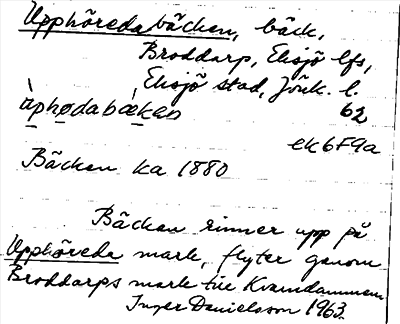 Upphöredabäcken, bäck,
Broddarp, Eksjö lfs,
Eksjö stad, Jönk. l.
àphødabækən 62
ek6F9a
Bäcken ka 1880
Bäcken rinner upp på
Upphöreda mark, flyter genom
Broddarps mark till Kvarndammen
Inger Danielsson 1963.